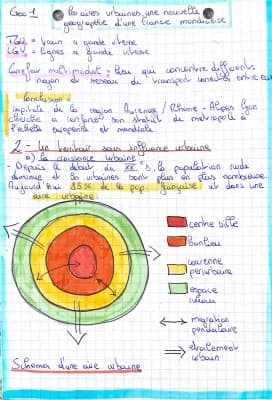 Géo 1 Les aires urbaines, une nouvelle
géographie d'une France mondialisée
TGV = train à grande vitesse
LGV = lignes à grande vitesse
Carrefour multimodal : lieu qui concentre différents
moyen et réseau de transport connectés entre eux
Conclusion :
capitale de la région Auvergne / Rhône - Alpes, Lyon
cherche à renforcer son statut de métropole à
l'échelle européenne et mondiale
2 - Un territoire sous influence urbaine
a) la croissance urbaine
- Depuis le début du XXe s, la population rurale
diminue et la urbaine sont plus en plus nombreuse.
Aujourd'hui 85% de la pop française vit dans une
aire urbaine.
centre ville
banlieue
couronne
périurbaine
espace
rural
migration
pendulaire
étalement
urbain
Schéma d'une aire urbaine